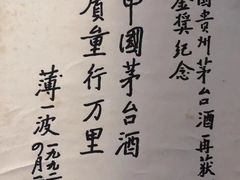 国贵州茅台酒再获
金奖纪念
中國茅台酒
质量行万里
薄一波
一九九二